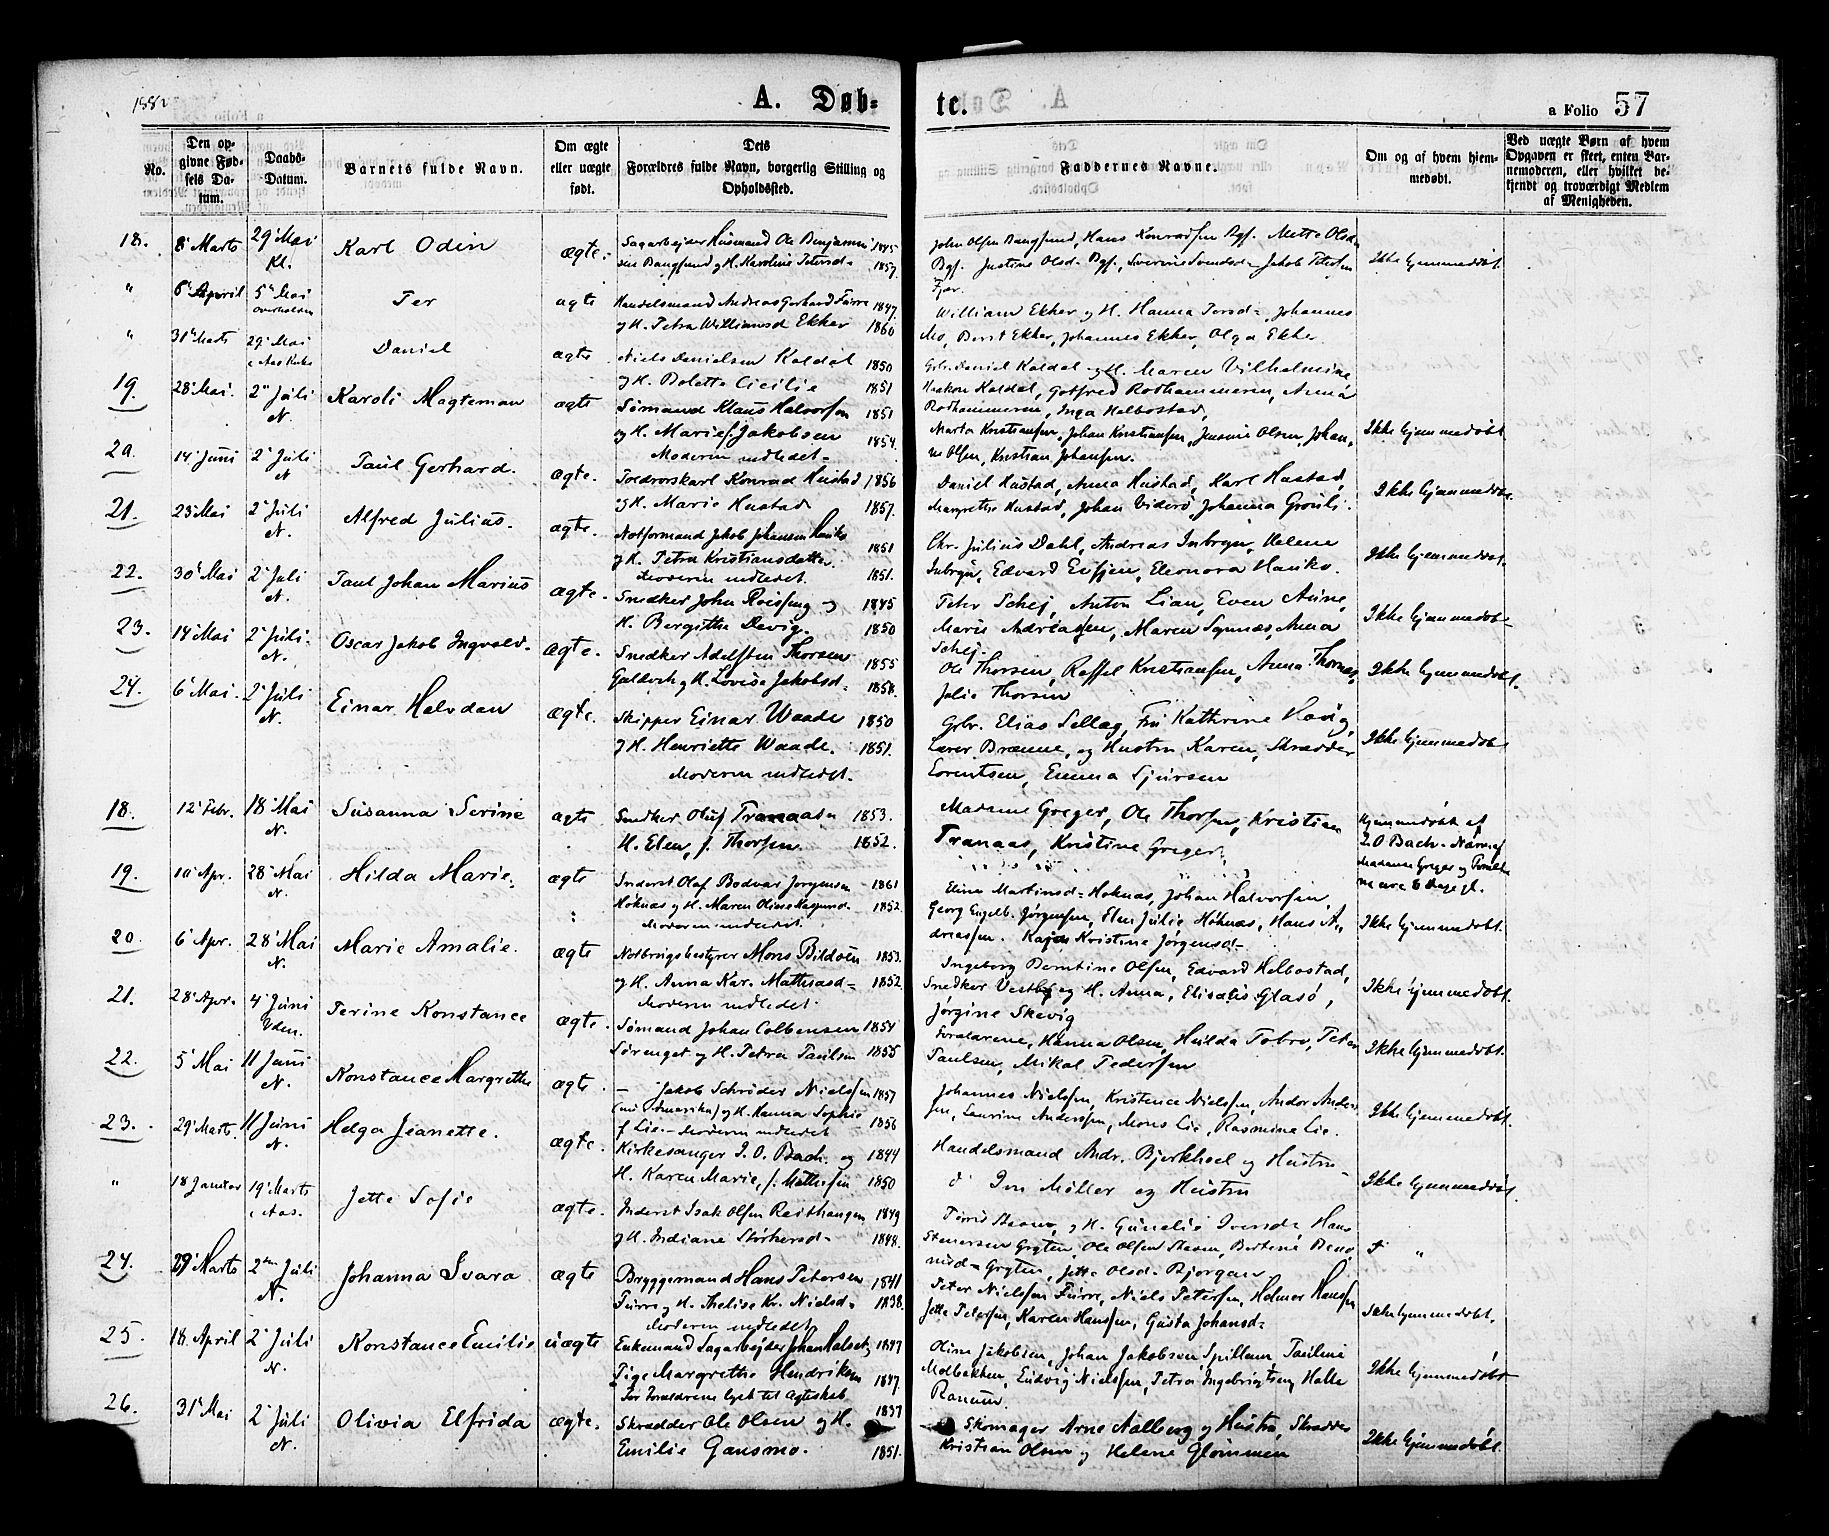 1882
A. Døb-
te.
a Folio 57
No.
Den op-
givne Fød-
sels Da-
tum.
Daabs-
Datum.
Barnets fulde Navn.
Om ægte
eller uægte
født.
Dets
Forældres fulde Navn, borgerlig Stilling og
Opholdssted.
Faddernes Navne.
Om og af hvem hjem-
medøbt.
Ved uægte Børn af hvem
Opgaven er skeet, enten Bar-
nemoderen, eller hvilket be-
kjendt og troværdigt Medlem
af Menigheden.
18. 8' Marts 29' Mai Kl. Karl Odin ægte. Sagarbejder Husmand Ole Benjamin 1845
sen Bangsund og H. Karoline Petersd- 1857.
John Olsen Bangsund, Hans Konradsen Bgs. Mette Olsd-
Bgs. Justine Olsd- Bgs., Severine Svendsd- Jakob Petersen
Ikke hjemmedøbt.
" 6' April 5' Mai Per ægte Handelsmand Andreas Gerhard Furre 1847.
og H. Petra Williamsd Ekker 1860
William Ekker og H. Hanna Persd- Johannes
Mo, Beret Ekker, Johannes Ekker, Olga Ekker
" 31' Marts 29' Mai Daniel ægte Niels Danielsen Kaldal 1850
og H. Bolette Cicilie 1851
Gbr. Daniel Kaldal og H. Maren Vilhelmine
Haakon Kaldal, Gotfred Rothammeren, Anna
Rothammeren, Inga Helbostad,
19. 28' Mai. 2' Juli N. Karoli Magteman ægte Sømand Klaus Halvorsen 1851
og H. Marie f. Jakobsen 1854.
Moderen indledet-
Marta Kristiansen, Johan Kristiansen, Jensine Olsen, Johan-
ne Olsen, Kristian Johansen.
Ikke hjemmedøbt
20. 14' Juni 2' Juli N Paul Gerhard. ægte. Konrad Hustad 1856
og H. Marie Hustad 1857.
Daniel Hustad, Anna Hustad, Karl Hustad,
Margrethe Hustad, Johan Viderø, Johanna Grønli.
Ikke hjemmedøbt.
21. 23' Mai 2' Juli N. Alfred Julius. ægte. Notformand Jakob Johansen Haniko 1851
og H. Petra Kristiansdatter 1851.
Moderen indledet.
Chr. Julius Dahl, Andreas Inbryn, Helene
Inbryn, Edvard Evjen, Eleonora Haniko.
Ikke hjemmedøbt.
22. 30' Mai 2' Juli N. Paul Johan Marius ægte. Snedker John Reissing og 1845
H. Bergithe Devig. 1850
Peter Schej, Anton Lian, Even Aune,
Marie Andreassen, Maren Synnæs, Anna
Schej.
Ikke hjemmedøbt-
23. 14' Mai 2' Juli. N. Oscar Jakob Ingvald. ægte. Snedker Adelsten Thorsen 1855
Guldvik og H. Lovise Jakobsd- 1858.
Ole Thorsen, Roffel Kristiansen, Anna Thomas,
Julie Thorsen
Ikke hjemmedøbt.
24. 6' Mai. 2' Juli N. Einar Halvdan ægte. Skipper Einar Waade 1850
og H. Henriette Waade. 1851.
Moderen indledet.
Gbr. Elias Sellæg, Fru Kathrine Haug,
Lærer Brænne, og Hustru Karen, Skrædder
Lorentsen, Emma Sjursen
Ikke hjemmedøbt
18. 12' Febr. 18' Mai N. Susanna Serine ægte Snedker Oluf Tranaas- 1853.
H. Elen, f. Thorsen. 1852.
Madame Greger, Ole Thorsen, Kristian
Tranaas, Kristine Greger.
Hjemmedøbt af
I. O. Bach. Nærv. af
Madame Greger og
19. 10' Apr. 28' Mai N. Hilda Marie. ægte Inderst Olaf Bodvar Jørgensen 1861
Høknæs og H. Maren Oline Hagund- 1852.
Moderen indledet.
Eline Martinsd- Høknæs, Johan Halvorsen,
Georg Engelb. Jørgensen, Elen Julie Høknæs, Hans An-
dreassen. Kaja Kristine Jørgensd-
Ikke hjemmedøbt.
20. 6' Apr. 28' Mai N. Marie Amalie. ægte Notbrugsbestyrer Mons Bildsøn 1853.
og H. Anna Kar. Mathiasd- 1852.
Moderen indledet.
Ingeborg Berntine Olsen, Edvard Helbostad,
Snedker Vestby og H. Anna, Elisalis Glasø,
Jørgine Skevig
Ikke hjemmedøbt.
21. 28' Apr. 4' Juni Uden. Serine Konstance ægte. Sømand Johan Colbensen 1854
Sørenget og H. Petra Paulsen 1855
Forældrene, Hanna Olsen, Hulda Fobro, Peter
Paulsen, Mikal Pedersen
Ikke hjemmedøbt.
22. 5' Mai 11' Juni N. Konstance Margrethe ægte. - Jakob Schrøder Nielsen 1857
(nu i Amerika) og H. Hanna Sophie 1856
f. Lie.- Moderen indledet
Johannes Nielsen, Kristence Nielsen, Andor Ander-
sen, Laurine Andersen, Mons Lie, Rasmine Lie.
Ikke hjemmedøbt.
23. 29' Marts. 11' Juni N. Helga Jeanette. ægte. Kirkesanger I. O. Bach. og 1844
H. Karen Marie, f. Mathisen 1850
Handelsmand Andr. Bjerkhoel og Hustru-
d' Iver Møller og Hustru
Ikke hjemmedøbt.
" 18' Januar 19' Marts i Aas. Jette Sofie ægte. Inderst Isak Olsen Reithaugen 1849
og H. Indiane Størkersd- 1848.
Stenersen Grythen, Ole Olsen Stesen, Bertine Bern-
24. 29' Marts 2den Juli N. Johanna Svara ægte Bryggemand Hans Petersen 1841
Furre og H. Thelise Kr. Nielsd- 1838.
Moderen indledet
Peter Nielsen Furre, Niels Petersen, Helmer Hansen
Jette Petersen, Karen Hansen, Gusta Johansd-
Ikke hjemmedøbt.
25. 18. April 2' Juli N. Konstance Emilie uægte Enkemand Sagarbejder Johan Halset 1847
Pige Margrethe Hendriksen 1847.
For Forældrene lyst til Ægteskab.
Oline Jakobsen, Johan Jakobsen Spillum Pauline
Moldbækken, Ludvig Nielsen, Petra Ingebrigtsen, Halle
Ranum.
Ikke hjemmedøbt
26. 31' Mai 2' Juli N. Olivia Elfrida ægte. Skrædder Ole Olsen og H. 1837
Emilie Gansmo. 1851.
Skomager Arne Aalberg og Hustru, Skrædder
Kristian Olsen og Helene Glommen
Ikke hjemmedøbt.